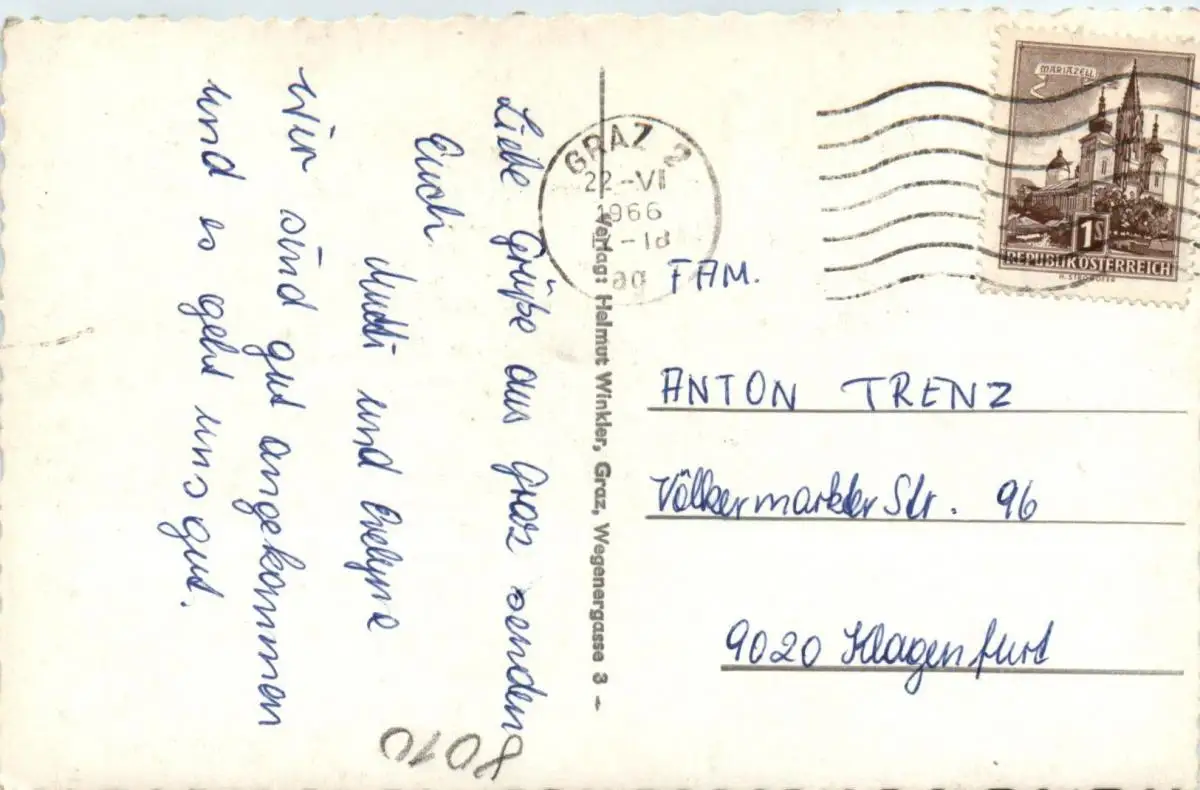 Liebe Grüße aus Graz senden
Euch
Mutti und Evelyne
Wir sind gut angekommen
und es geht uns gut.
8010
Verlag: Helmut Winkler, Graz, Wegenergasse 3 -
GRAZ 2
22-VI
1966
-18
MARIAZELL
1S
REPUBLIK ÖSTERREICH
FAM.
ANTON TRENZ
Völkermarkter Str. 96
9020 Klagenfurt